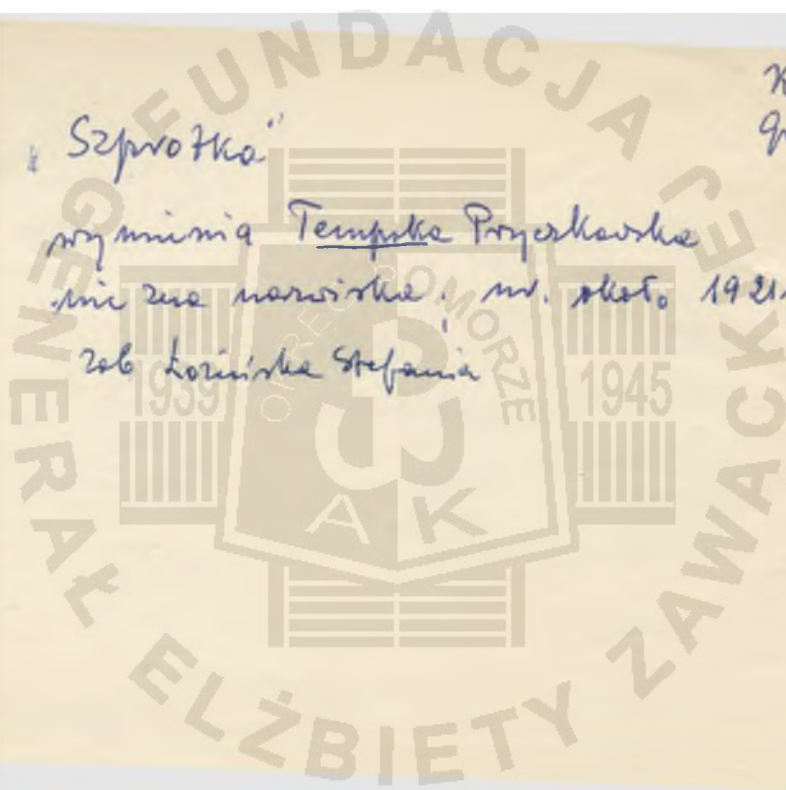 K
„Szprotka”
g
wymienia Tempska Pryczkowska
nie zna nazwiska. ur. około 1921
zob Łozińska Stefania
FUNDACJA GENERAŁ ELŻBIETY ZAWACK
OKRĘG POMORZE
1939 1945
AK